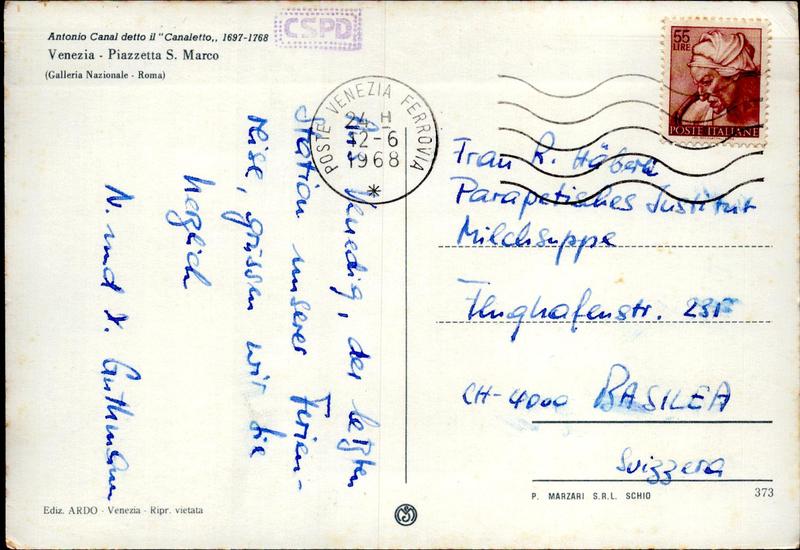 Antonio Canal detto il "Canaletto,, 1697-1768
Venezia - Piazzetta S. Marco
(Galleria Nazionale - Roma)
CSPD
POSTE VENEZIA FERROVIA
24 H
12-6
1968
55
LIRE
POSTE ITALIANE
Aus Venedig, der letzten
Station unserer Ferien-
reise, grüssen wir Sie
herzlich
N. und
Frau R. Häberli
Parapetisches Institut
Milchsuppe
Flughafenstr. 235
CH-4000 BASILEA
Svizzera
P. MARZARI S.R.L. SCHIO
373
Ediz. ARDO - Venezia - Ripr. vietata